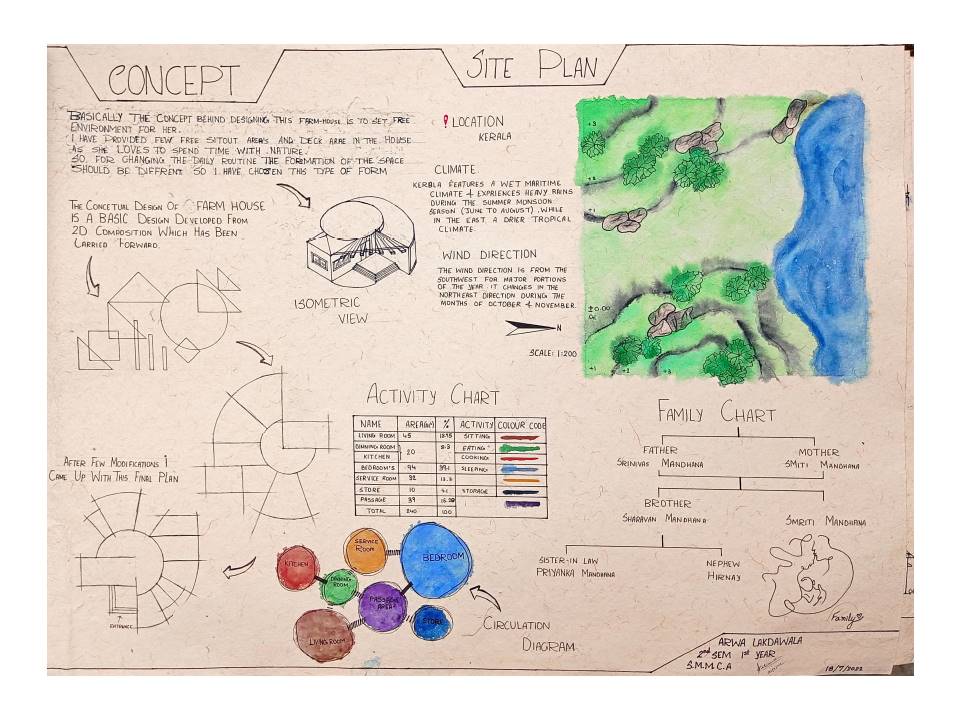 CONCEPT
SITE PLAN
BASICALLY THE CONCEPT BEHIND DESIGNING THIS FARM-HOUSE IS TO SET FREE
ENVIRONMENT FOR HER.
I HAVE PROVIDED FEW FREE SITOUT AREAS AND DECK ARAE IN THE HOUSE
AS SHE LOVES TO SPEND TIME WITH NATURE.
SO, FOR CHANGING THE DAILY ROUTINE THE FORMATION OF THE SPACE
SHOULD BE DIFFRENT SO I HAVE CHOSEN THIS TYPE OF FORM
THE CONCETUAL DESIGN OF FARM HOUSE
IS A BASIC DESIGN DEVELOPED FROM
2D COMPOSITION WHICH HAS BEEN
CARRIED FORWARD.
ISOMETRIC
VIEW
LOCATION
KERALA
CLIMATE
KERALA FEATURES A WET MARITIME
CLIMATE & EXPRIENCES HEAVY RAINS
DURING THE SUMMER MONSOON
SEASON (JUNE TO AUGUST), WHILE
IN THE EAST A DRIER TROPICAL
CLIMATE.
WIND DIRECTION
THE WIND DIRECTION IS FROM THE
SOUTHWEST FOR MAJOR PORTIONS
OF THE YEAR IT CHANGES IN THE
NORTHEAST DIRECTION DURING THE
MONTHS OF OCTOBER & NOVEMBER
N
SCALE: 1:200
+3
+2
+1
±0.00
+1 +2 +3
AFTER FEW MODIFICATIONS I
CAME UP WITH THIS FINAL PLAN
ENTRANCE
ACTIVITY CHART
NAME AREA(M) % ACTIVITY COLOUR CODE
LIVING ROOM 45 18.75 SITTING
DINNING ROOM 20 8.3 EATING
KITCHEN COOKING
BEDROOM'S 94 39.1 SLEEPING
SERVICE ROOM 32 13.3
STORE 10 4.1 STORAGE
PASSAGE 39 16.25
TOTAL 240 100
KITCHEN
SERVICE
ROOM
BEDROOM
DINNING
ROOM
PASSAGE
AREA
STORE
LIVING ROOM
CIRCULATION
DIAGRAM
FAMILY CHART
FATHER
SRINIVAS MANDHANA
MOTHER
SMITI MANDHANA
BROTHER
SHARAVAN MANDHANA
SMRITI MANDHANA
SISTER-IN LAW
PRIYANKA MANDHANA
NEPHEW
HIRNAY
Family
ARWA LAKDAWALA
2nd SEM 1st YEAR
S.M.M.C.A
18/7/2022